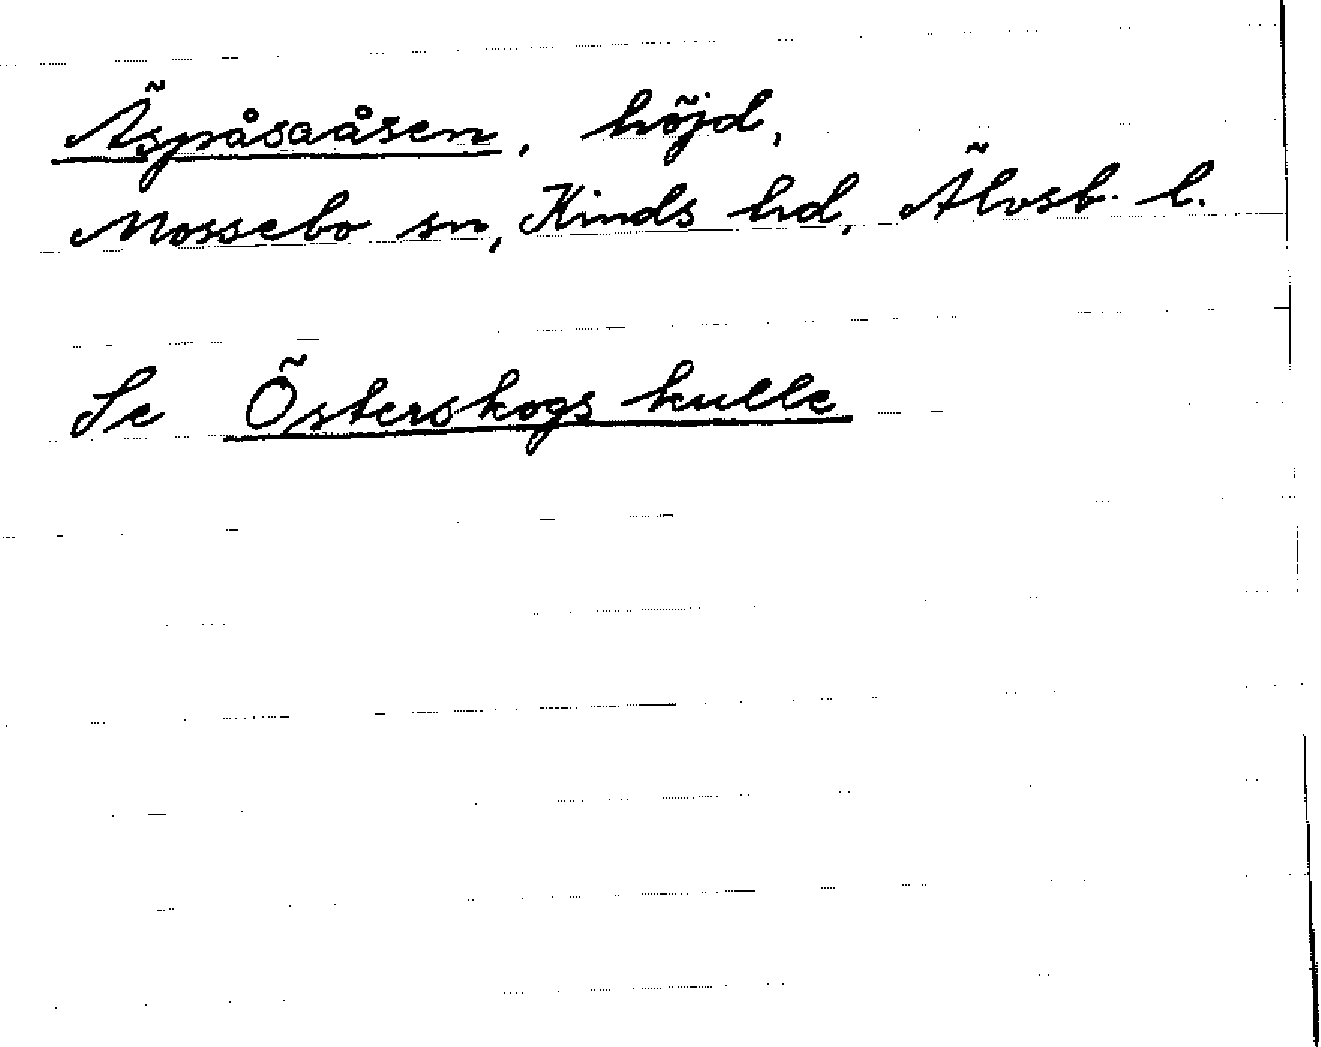 Äspåsaåsen, höjd,
Mossebo sn, Kinds hd, Älvsb. l.
Se Österskogs kulle